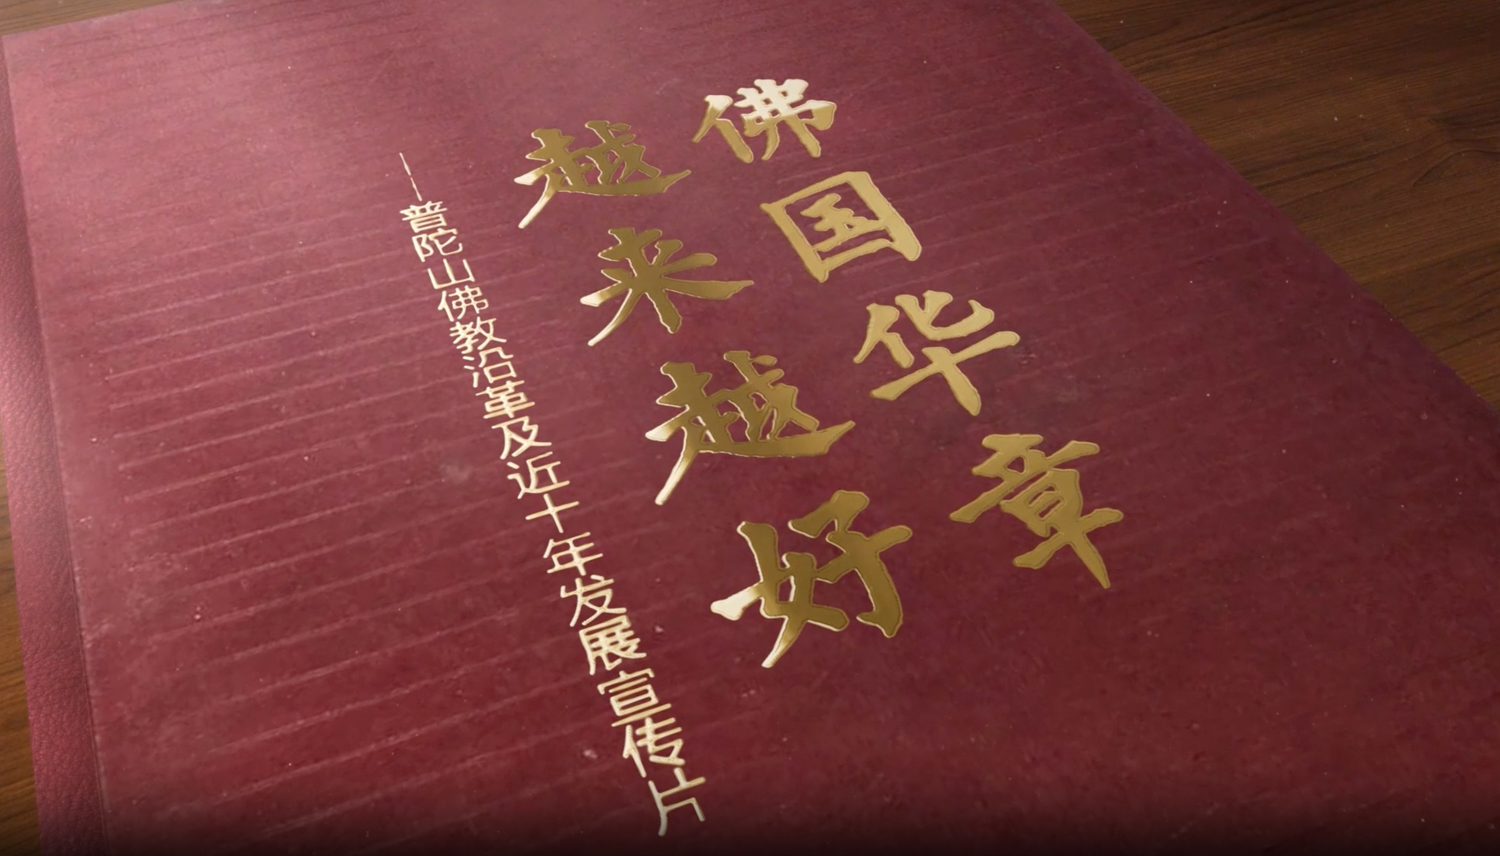 佛国华章
越来越好
——普陀山佛教沿革及近十年发展宣传片